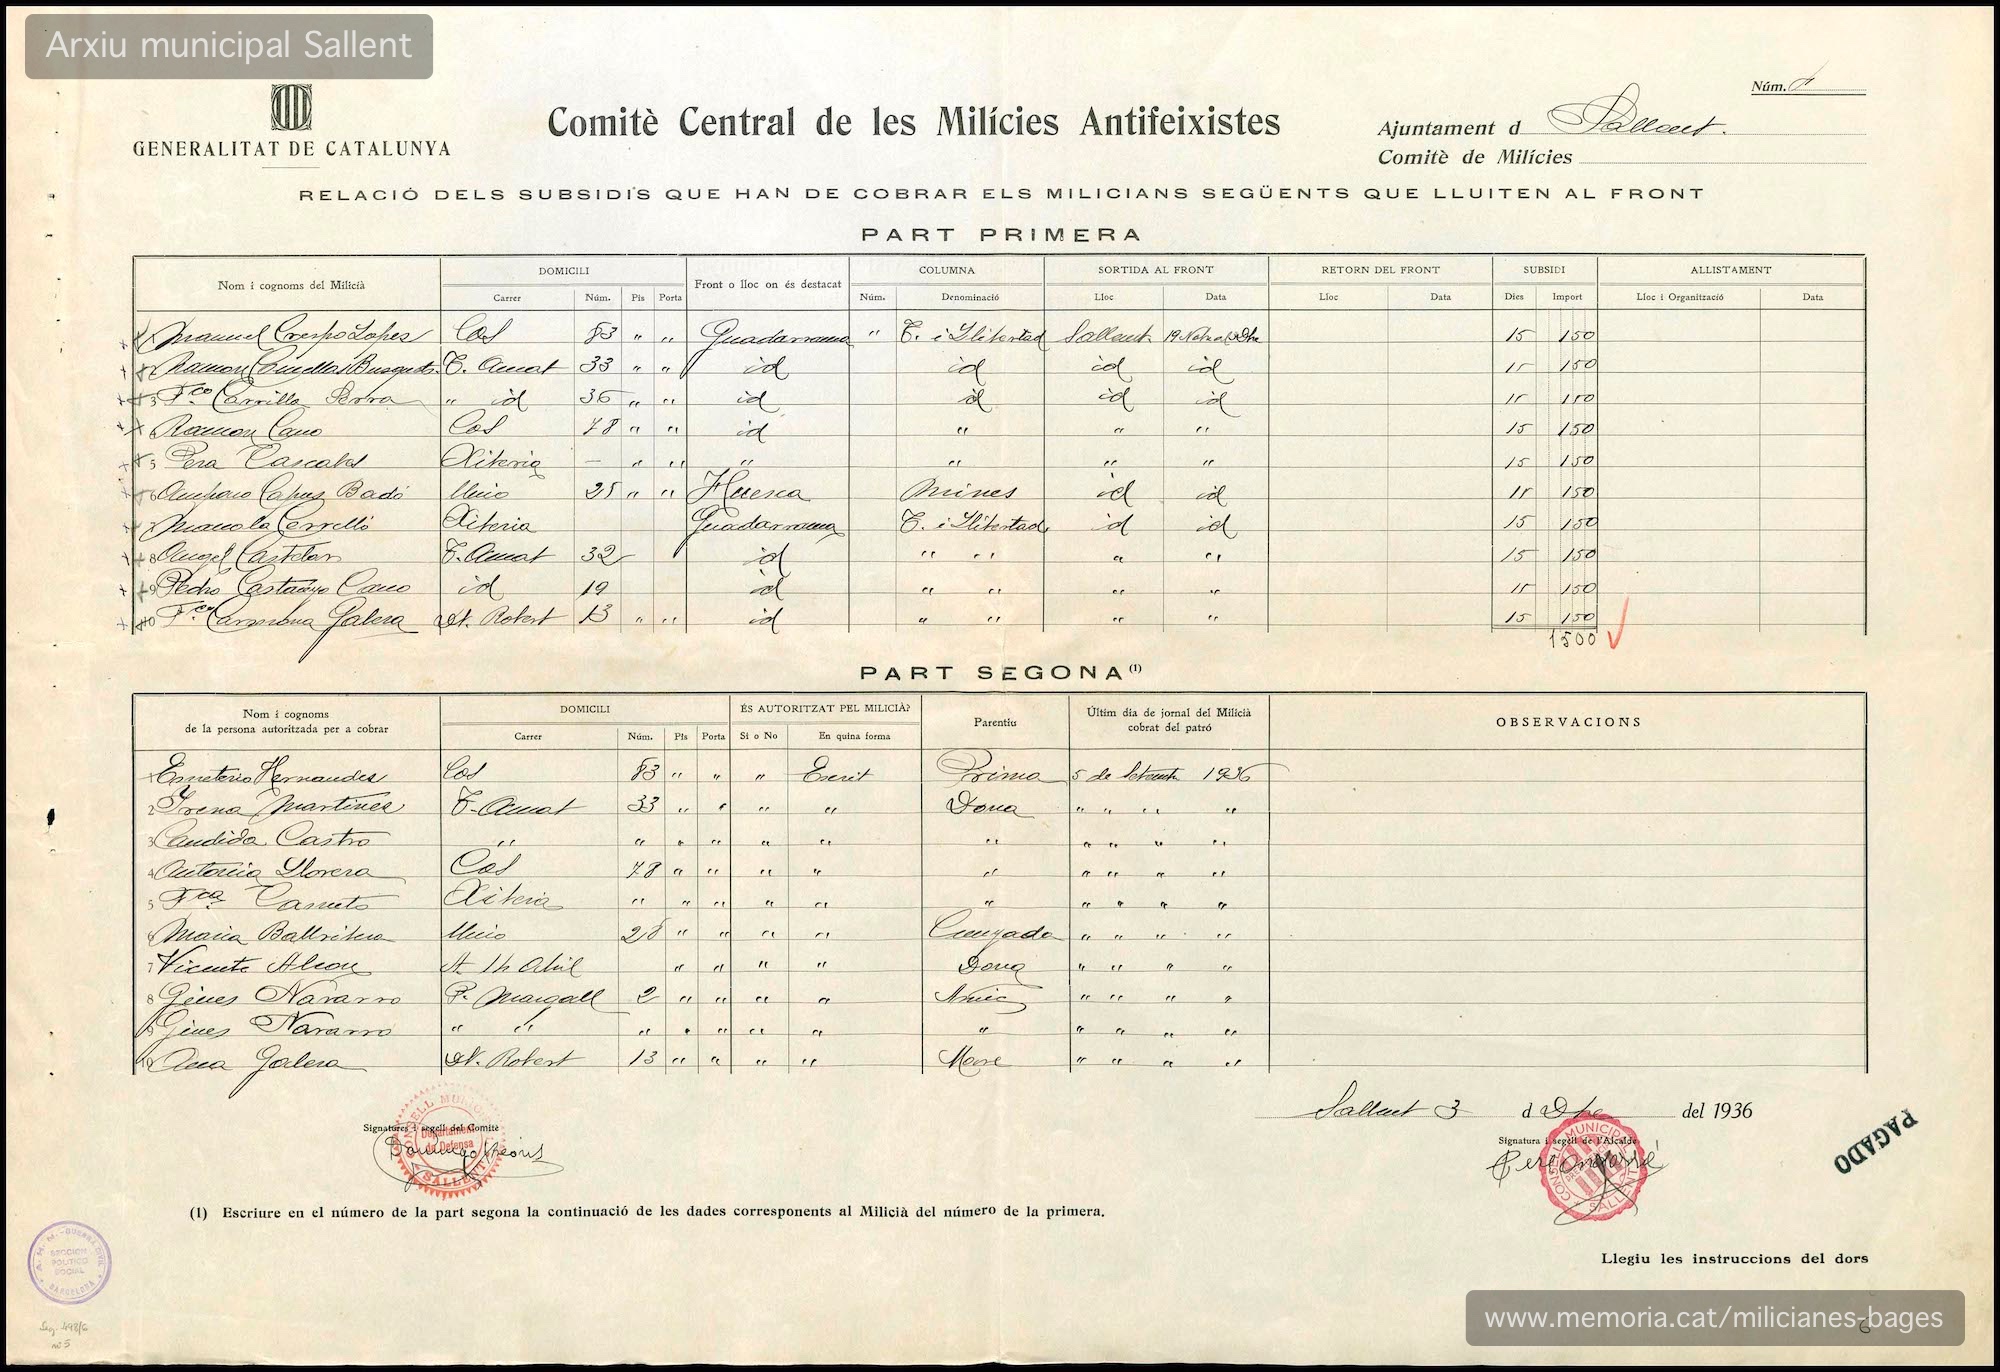 Arxiu municipal Sallent
Núm.
GENERALITAT DE CATALUNYA
Comitè Central de les Milícies Antifeixistes
Ajuntament d Sallent.
Comitè de Milícies
RELACIÓ DELS SUBSIDIS QUE HAN DE COBRAR ELS MILICIANS SEGÜENTS QUE LLUITEN AL FRONT
PART PRIMERA
Nom i cognoms del Milicià DOMICILI Front o lloc on és destacat COLUMNA SORTIDA AL FRONT RETORN DEL FRONT SUBSIDI ALLISTAMENT
Carrer Núm. Pis Porta Núm. Denominació Lloc Data Lloc Data Dies Import Lloc i Organització Data
1 Manuel Crespo Lopes Cos 83 " " Guadarrama " T. i Llibertad Sallent 19 15 150
2 Ramon Busquets T. Amat 33 " " id id id id 15 150
3 Fco Carrilla Serra " id 36 " " id id id id 15 150
4 Ramon Cano Cos 78 " " id " " " 15 150
5 Pera Cascales Xiteria — " " " " " " 15 150
6 Amparo Capus Badó Unio 25 " " Huesca Mines id id 15 150
7 Manola Cerrelló Xiteria Guadarrama T. i Llibertad id id 15 150
8 Angel Castelar T. Amat 32 id " " " " 15 150
9 Pedro Castanyo Cano id 19 id " " " " 15 150
10 Fco Carmona Galera Dr. Robert 13 " " id " " " " 15 150
1500
PART SEGONA (1)
Nom i cognoms de la persona autoritzada per a cobrar DOMICILI ÉS AUTORITZAT PEL MILICIÀ? Parentiu Últim dia de jornal del Milicià cobrat del patró OBSERVACIONS
Carrer Núm. Pis Porta Sí o No En quina forma
1 Emeterio Hernandes Cos 83 " " " Escrit Prima 5 de Setembre 1936
2 Irena Martines T. Amat 33 " " " " Dona " " " "
3 Candida Castro " " " " " " " " " " "
4 Antonia Llorera Cos 78 " " " " " " " " "
5 Fca Casneto Xiteria " " " " " " " " " "
6 Maria Unio 28 " " " " Cunyada " " " "
7 Vicenta Alcon 14 Abril " " " " Dona " " " "
8 Gines Navarro P. Margall 2 " " " " Amic " " " "
9 Gines Navarro " " " " " " " " " " " "
10 Ana Galera Dr. Robert 13 " " " " Mare " " " "
Sallent 3 d Dbre del 1936
Signatures i segell del Comitè
CONSELL MUNICIPAL
Departament de Defensa
SALLENT
Signatura i segell de l'Alcalde
CONSELL MUNICIPAL
SALLENT
PAGADO
(1) Escriure en el número de la part segona la continuació de les dades corresponents al Milicià del número de la primera.
SECCION POLITICO SOCIAL
BARCELONA
Llegiu les instruccions del dors
www.memoria.cat/milicianes-bages
6